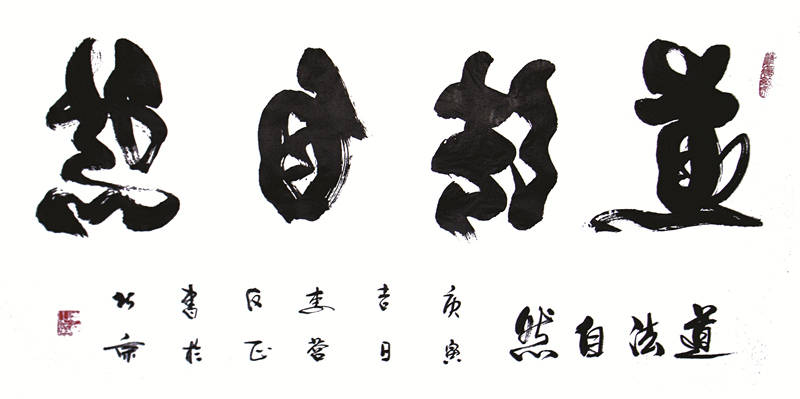 道法自然
道法自然
庚寅
吉日
書於
北京